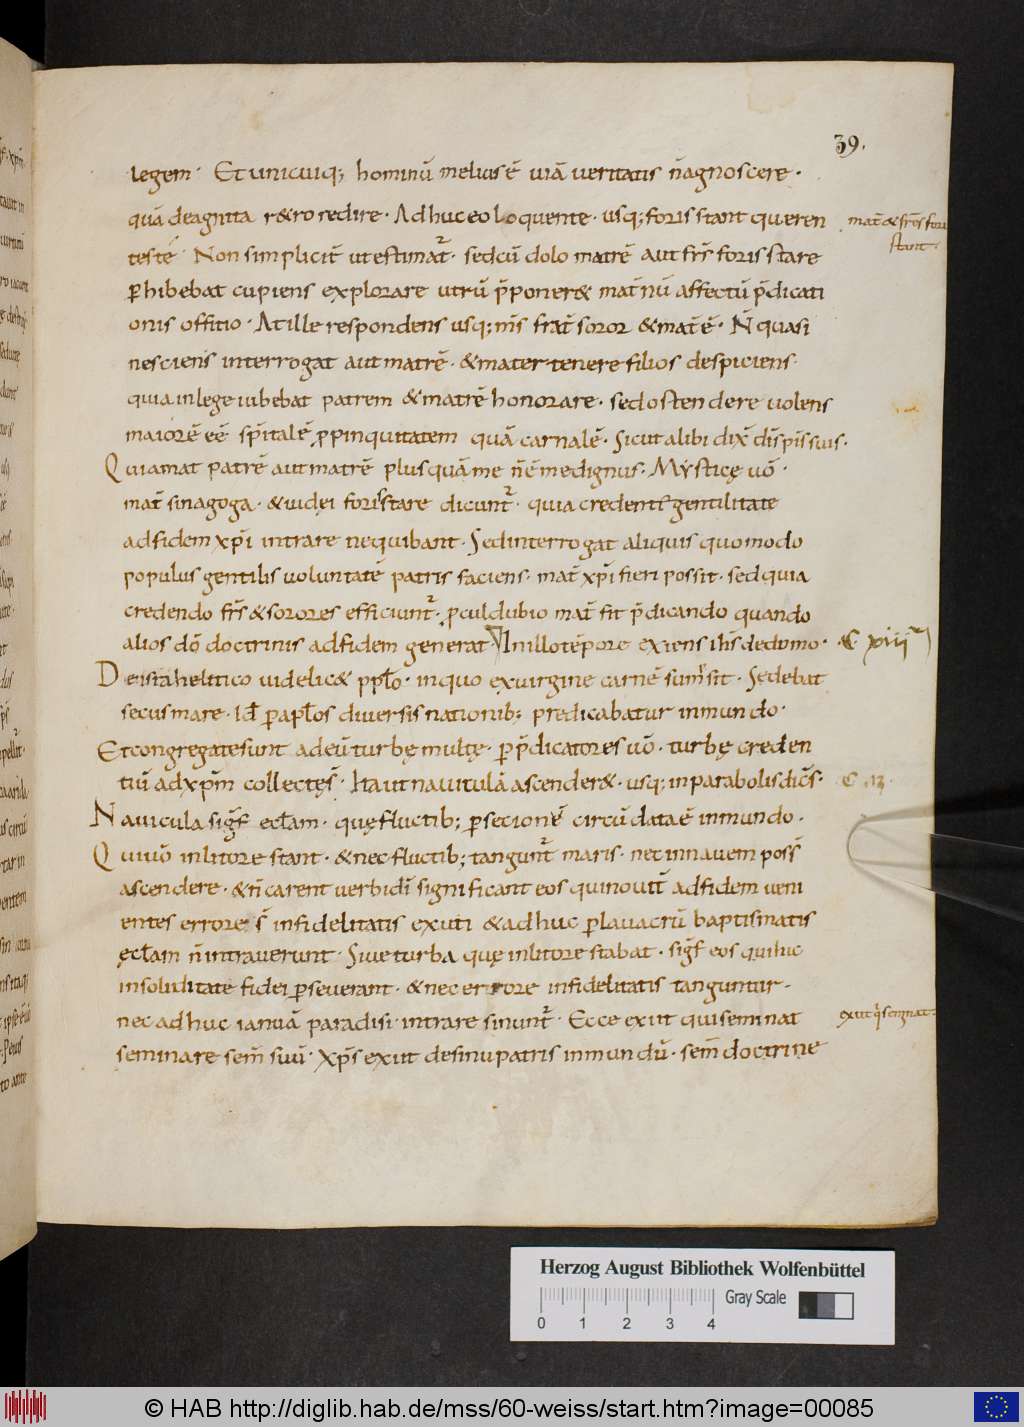 39.
legem. Et unicuiq; hominū melius ē uiā ueritatis n̄ agnoscere.
quā de agnita r&ro redire. Adhuc eo loquente. usq; foris stant queren
tes te. Non simplicit̄ ut estimat̄. sed cū dolo matrē aut fr̄s foris stare
phibebat cupiens explorare utrū p̄poner& mat̄nū affectū p̄dicati
onis offitio. At ille respondens usq; m̄s frat̄ soror & mat̄ ē. N̄ quasi
nesciens interrogat aut matrē. & mater tenere filios despiciens.
quia in lege iubebat patrem & matrē honorare. sed ostendere uolens
maiorē eē sp̄italē ppinquitatem quā carnalē. Sicut alibi dix̄ disp̄is suis.
Qui amat patrē aut matrē plus quā me n̄ ē me dignus. Mysticę uō.
mat̄ sinagoga. & iudei foris stare dicunt̄. quia credentē gentilitate
ad fidem xp̄i intrare nequibant. Sed interrogat aliquis quomodo
populus gentilis uoluntatē patris faciens. mat̄ xp̄i fieri possit. sed quia
credendo fr̄s & sorores efficiunt̄. procul dubio mat̄ fit p̄dicando quando
alios dō doctrinis ad fidem generat. In illo tēpore exiens ih̄s de domo.
De israhelitico uidelic& pplo. in quo ex uirgine carnē sūmsit. Sedebat
secus mare. Id ē p aplos diuersis nationib; predicabatur in mundo.
Et congregate sunt ad eū turbę multę. p p̄dicatores uō. turbę creden
tiū ad xp̄m collectę s̄. Ita ut nauiculā ascender&. usq; in parabolis dic̄s.
Nauicula sigf̄ ecl̄am. quę fluctib; psecionē circūdata ē in mundo.
Qui uō in litore stant. & nec fluctib; tangunt̄ maris. nec in nauem poss̄
ascendere. & n̄ carent uerbi dī significant eos qui nouit̄ ad fidem ueni
entes errore s̄ infidelitatis exuti & adhuc p lauacrū baptismatis
ęcl̄am n̄ intrauerunt. Siue turba quę in litore stabat. sigf̄ eos qui huc
in soliditate fidei pseuerant. & nec errore infidelitatis tanguntur.
nec adhuc ianuā paradisi intrare sinunt̄. Ecce exiit qui seminat
seminare sem̄ suū. Xp̄s exiit de sinu patris in mundū. sem̄ doctrine
mat̄ & fr̄s fori
stant.
exiit q̄ seminat.
Herzog August Bibliothek Wolfenbüttel
Gray Scale
0 1 2 3 4
© HAB http://diglib.hab.de/mss/60-weiss/start.htm?image=00085